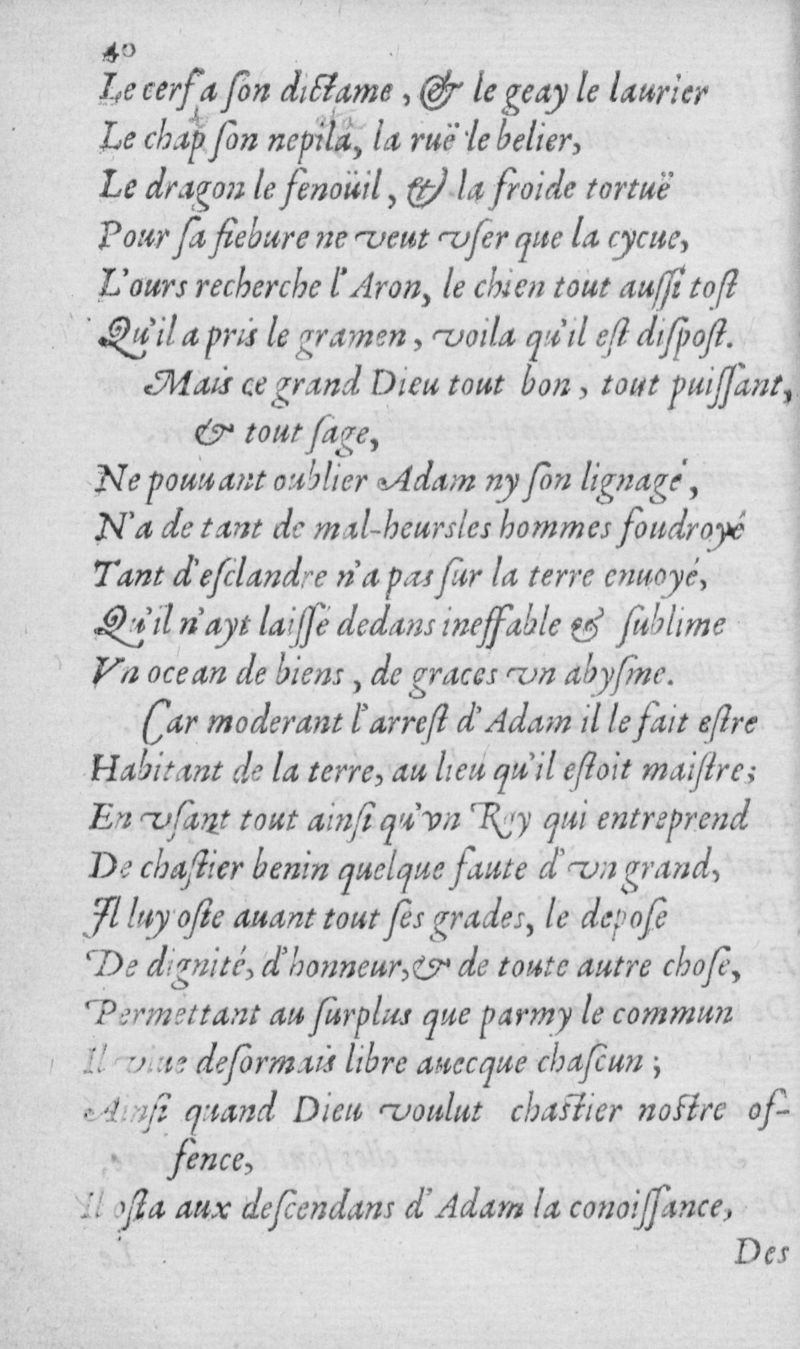 40
Le cerf a ſon dictame, & le geay le laurier
Le chap ſon nepila, la ruë le belier,
Le dragon le fenoüil, & la froide tortuë
Pour ſa fiebure ne veut vſer que la cycue,
L'ours recherche l'Aron, le chien tout auſſi toſt
Qu'il a pris le gramen, voila qu'il eſt diſpoſt.
Mais ce grand Dieu tout bon, tout puiſſant,
& tout ſage,
Ne pouuant oublier Adam ny ſon lignage,
N'a de tant de mal-heurs les hommes foudroyé
Tant d'eſclandre n'a pas ſur la terre enuoyé,
Qu'il n'ayt laiſſé dedans ineffable & ſublime
Vn ocean de biens, de graces vn abyſme.
Car moderant l'arreſt d'Adam il le fait eſtre
Habitant de la terre, au lieu qu'il eſtoit maiſtre;
En vſant tout ainſi qu'vn Roy qui entreprend
De chaſtier benin quelque faute d'vn grand,
Il luy oſte auant tout ſes grades, le depoſe
De dignité, d'honneur, & de toute autre choſe,
Permettant au ſurplus que parmy le commun
Il viue deſormais libre auecque chaſcun;
Ainſi quand Dieu voulut chaſtier noſtre of-
fence,
Il oſta aux deſcendans d'Adam la conoiſſance,
Des